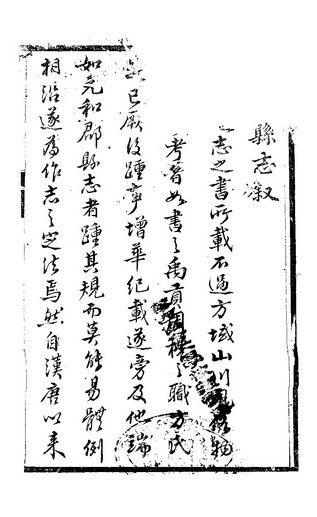 縣志叙
志之書所載不過方域山川風俗物
考昔如書之禹貢周禮之職方氏
已厥後踵事增華紀載遂旁及他端
如元和郡縣志者踵其規而莫能易體例
相沿遂為作志之定法焉然自漢唐以来